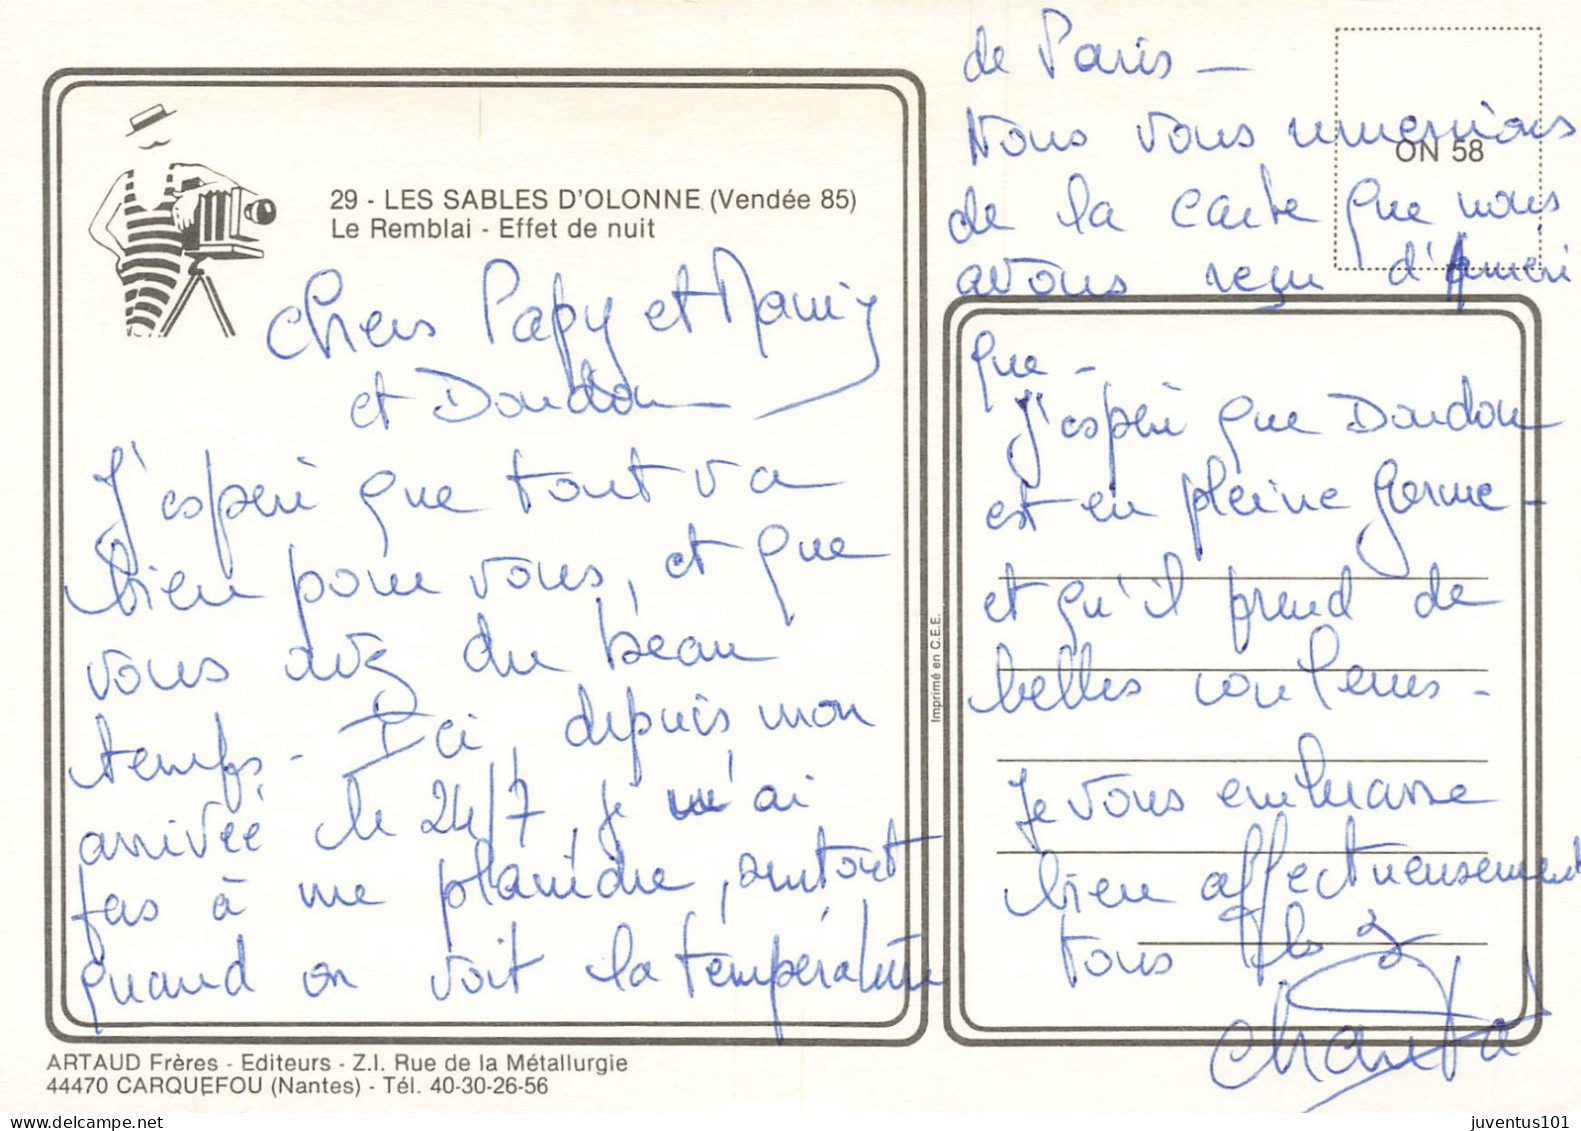 29 - LES SABLES D'OLONNE (Vendée 85)
Le Remblai - Effet de nuit
Chers Papy et Mamie
et Doudou
J'espère que tout va
bien pour vous, et que
vous avez du beau
temps - Ici, depuis mon
arrivée le 24/7, je n'ai
pas à me plaindre, surtout
quand on voit la température
de Paris -
Nous vous remercions
de la carte que nous
avons reçu d'Améri
que -
J'espère que Doudou
est en pleine forme -
et qu'il prend de
belles couleurs -
Je vous embrasse
bien affectueusement
tous les 3
Chantal
ON 58
Imprimé en C.E.E.
ARTAUD Frères - Editeurs - Z.I. Rue de la Métallurgie
44470 CARQUEFOU (Nantes) - Tél. 40-30-26-56
juventus101